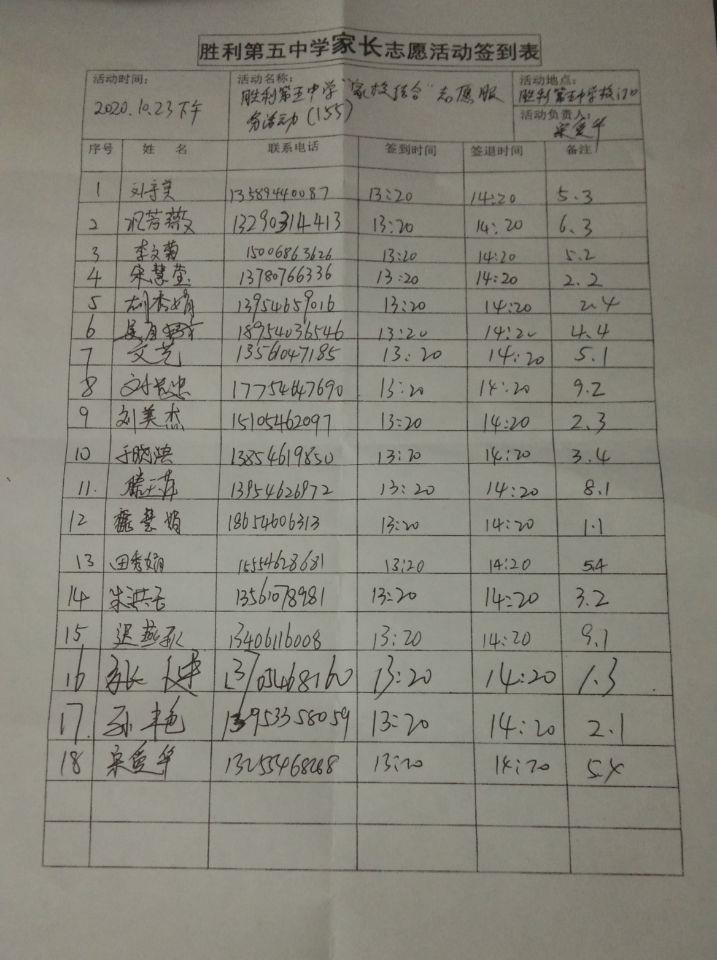 胜利第五中学家长志愿活动签到表
活动时间: 2020.10.23下午
活动名称: 胜利第五中学"家校结合"志愿服务活动(155)
活动地点: 胜利第五中学校门口
活动负责人: 宋爱华
序号 姓 名 联系电话 签到时间 签退时间 备注
1 13589440087 13:20 14:20 5.3
2 祝芳薇 13290314413 13:20 14:20 6.3
3 李文菊 15006863626 13:20 14:20 5.2
4 宋慧莹 13780766336 13:20 14:20 2.2
5 13954659016 13:20 14:20 2.4
6 18954036546 13:20 14:20 4.4
7 文芝 13561047185 13:20 14:20 5.1
8 17754647690 13:20 14:20 9.2
9 刘美杰 15105462097 13:20 14:20 2.3
10 于晓洪 13854619850 13:20 14:20 3.4
11. 13954626972 13:20 14:20 8.1
12 18654606313 13:20 14:20 1.1
13 田秀娟 15554628681 13:20 14:20 5.4
14 13561078981 13:20 14:20 3.2
15 13406116008 13:20 14:20 9.1
16 13705468160 13:20 14:20 1.3
17. 孙艳 13953358059 13:20 14:20 2.1
18 宋爱华 13255468268 13:20 14:20 5.4